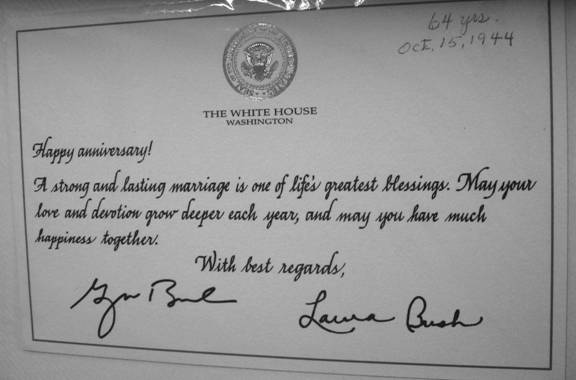 64 yrs.
Oct. 15, 1944
THE WHITE HOUSE
WASHINGTON
Happy anniversary!
A strong and lasting marriage is one of life's greatest blessings. May your
love and devotion grow deeper each year, and may you have much
happiness together.
With best regards,
Laura Bush